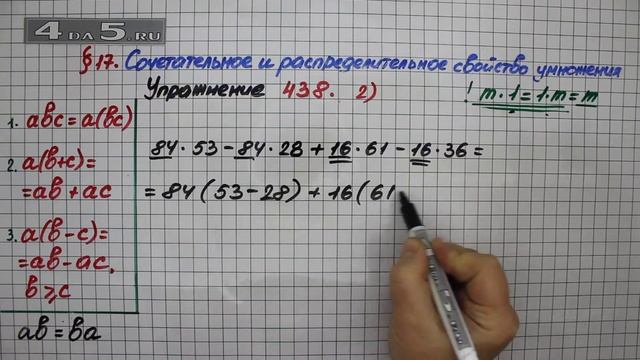 4DA5.RU
§17. Сочетательное и распределительное свойство умножения
Упражнение 438. 2)
! m·1=1·m=m
1. abc=a(bc)
2. a(b+c)=
=ab+ac
3. a(b-c)=
=ab-ac,
b⩾c
ab=ba
84·53-84·28+16·61-16·36=
=84(53-28)+16(61